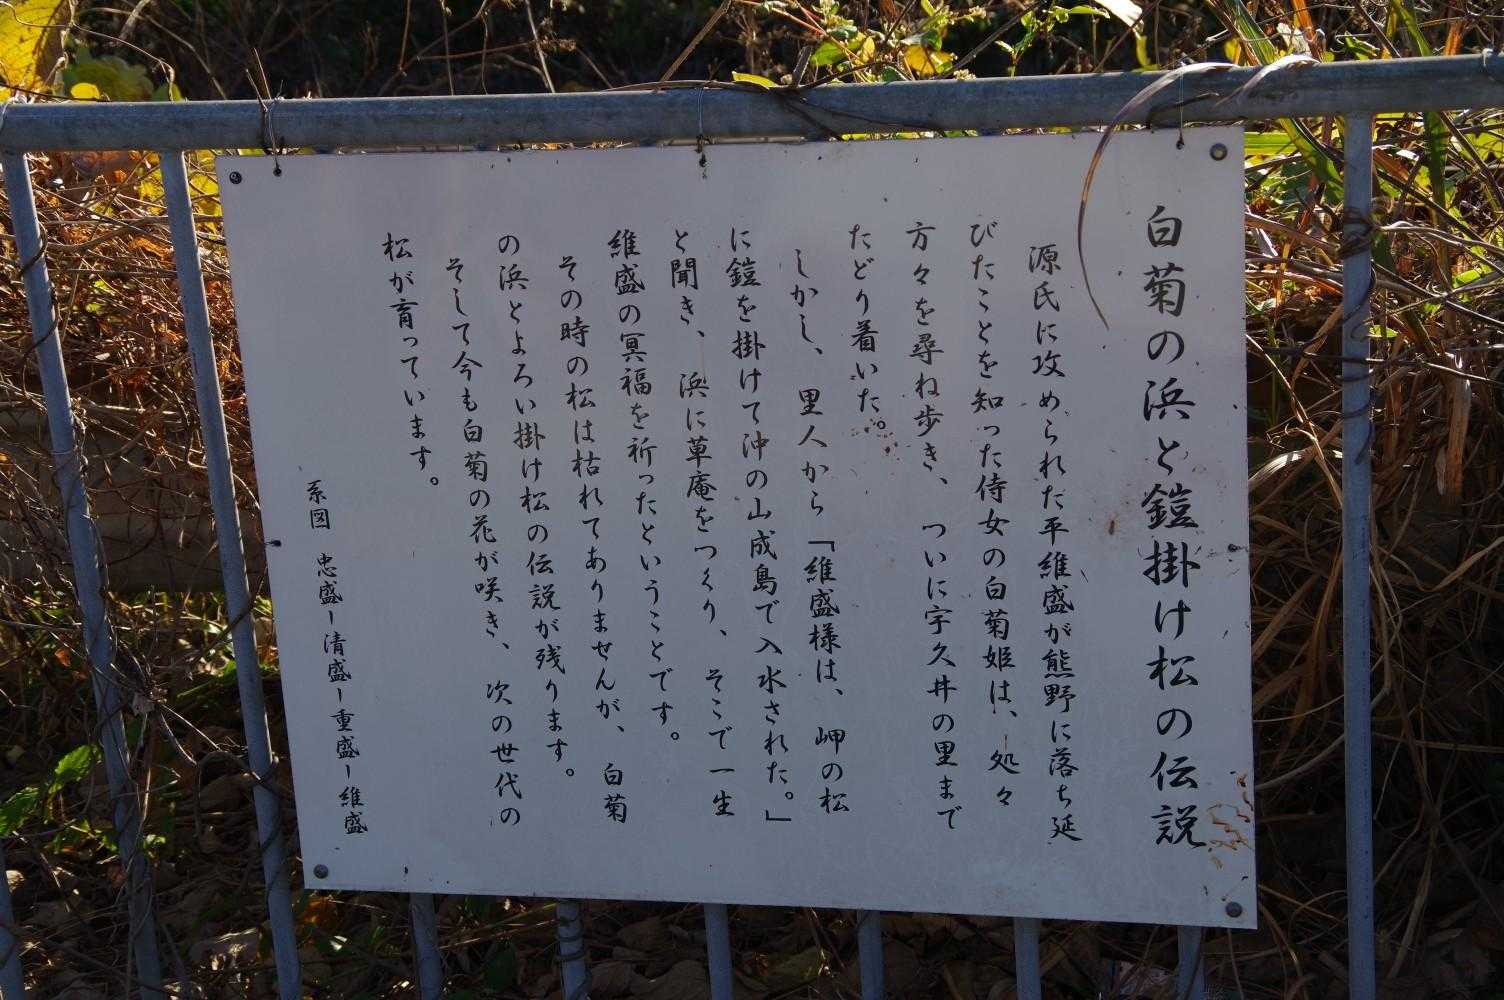 白菊の浜と鎧掛け松の伝説
源氏に攻められた平維盛が熊野に落ち延
びたことを知った侍女の白菊姫は、処々
方々を尋ね歩き、ついに宇久井の里まで
たどり着いた。
しかし、里人から「維盛様は、岬の松
に鎧を掛けて沖の山成島で入水された。」
と聞き、浜に草庵をつくり、そこで一生
維盛の冥福を祈ったということです。
その時の松は枯れてありませんが、白菊
の浜とよろい掛け松の伝説が残ります。
そして今も白菊の花が咲き、次の世代の
松が育っています。
系図 忠盛ー清盛ー重盛ー維盛